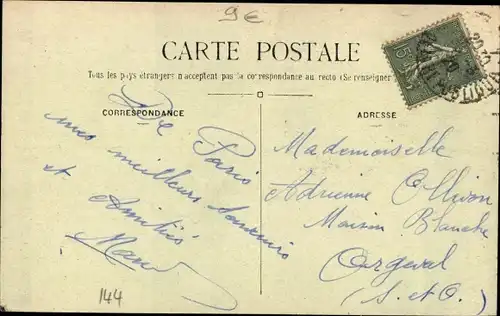 9€
CARTE POSTALE
Tous les pays étrangers n'acceptent pas la correspondance au recto (Se renseigner
CORRESPONDANCE
ADRESSE
De Paris
mes meilleurs souvenirs
et Amitiés
Mademoiselle
Adrienne Ollivon
Maison Blanche
Orgeval
(S. et O.)
144
15